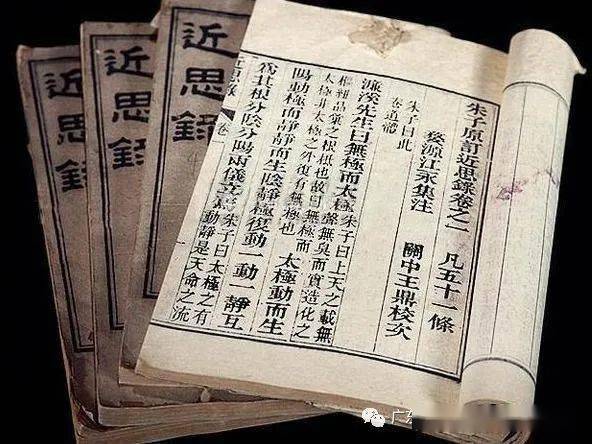 朱子原訂近思錄卷之一 凡五十一條
婺源江永集注 關中王鼎校次
朱子曰此
卷道體
濂溪先生曰無極而太極
朱子曰上天之載無
聲無臭而實造化之
樞紐品彙之根柢也故曰無極而
太極非太極之外復有無極也
太極動而生
陽動極而靜靜而生陰靜極復動一動一靜互
爲其根分陰分陽兩儀立焉
朱子曰太極之有
動靜是天命之流
近思錄 卷一
近思錄
近思錄
近思錄
广